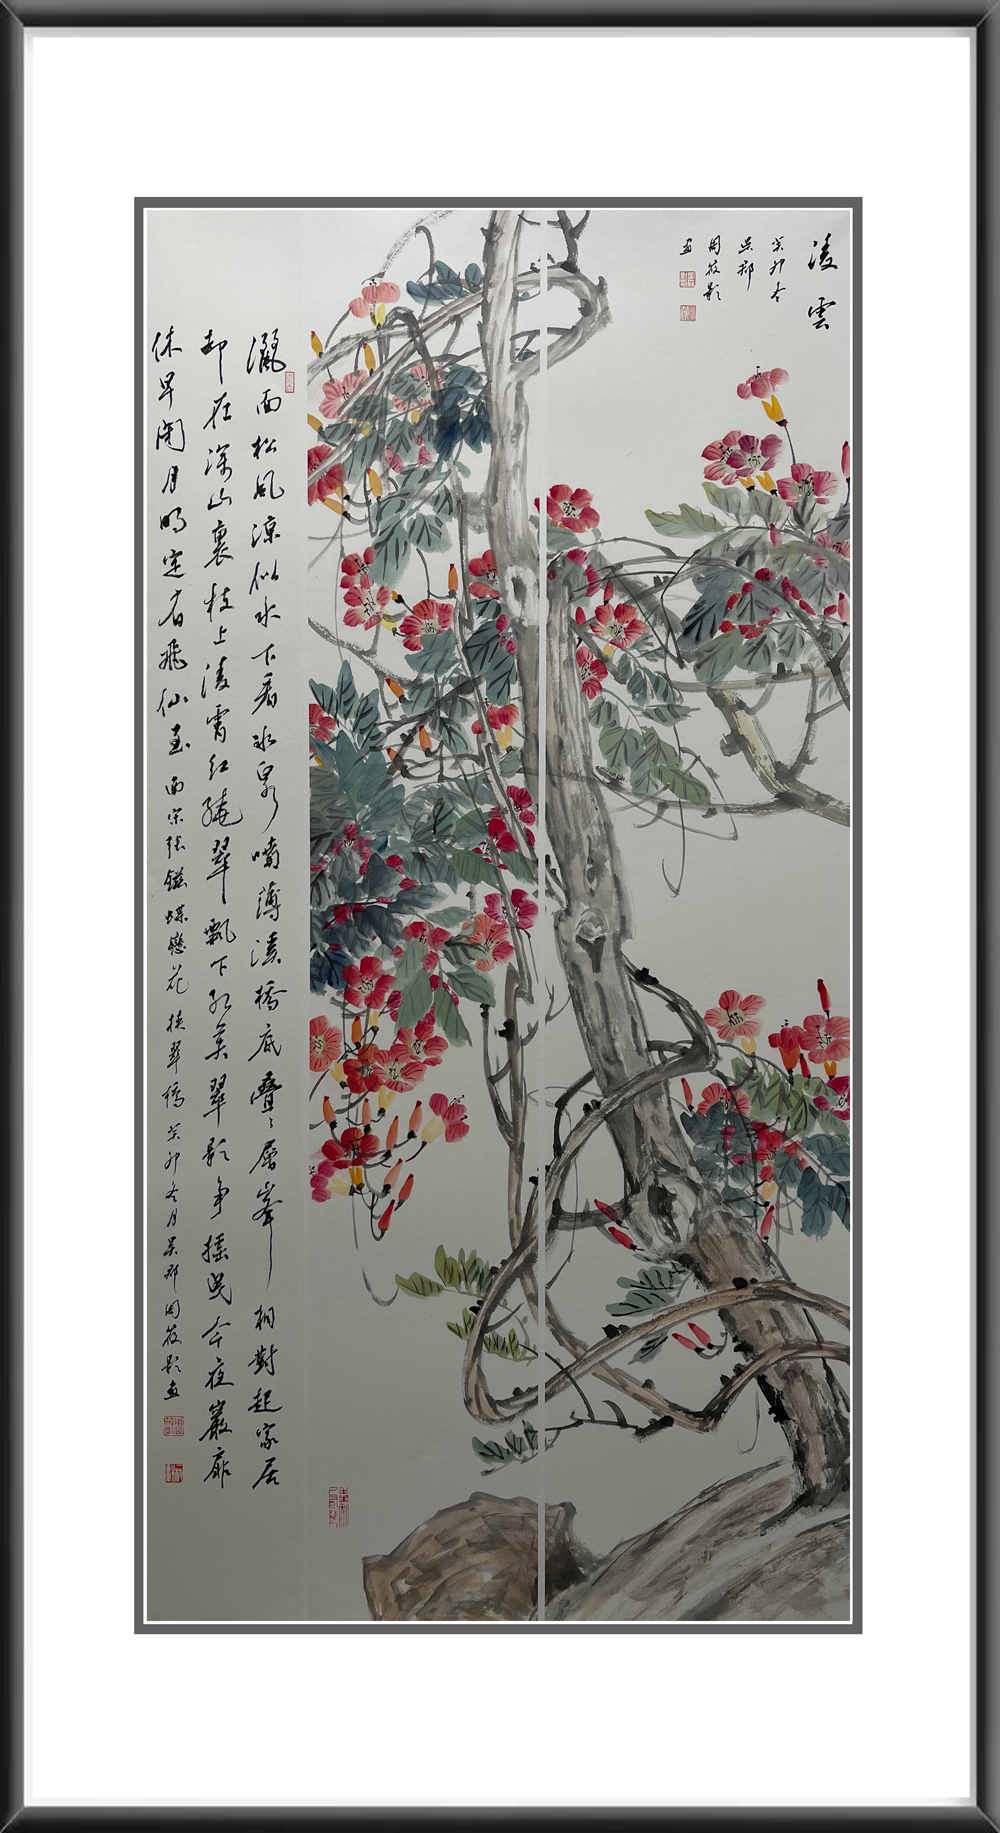 凌雲
癸卯冬
吳郡
周筱影
畫
灑面松風涼似水下看冰泉噴薄溪橋底疊〻層峯相對起家居
却在深山裏枝上凌霄紅繞翠飄下紅英翠影爭搖曳今夜巖扉
休早閉月明定有飛仙至 南宋張鎡蝶戀花挾翠橋 癸卯冬月吳郡周筱影畫